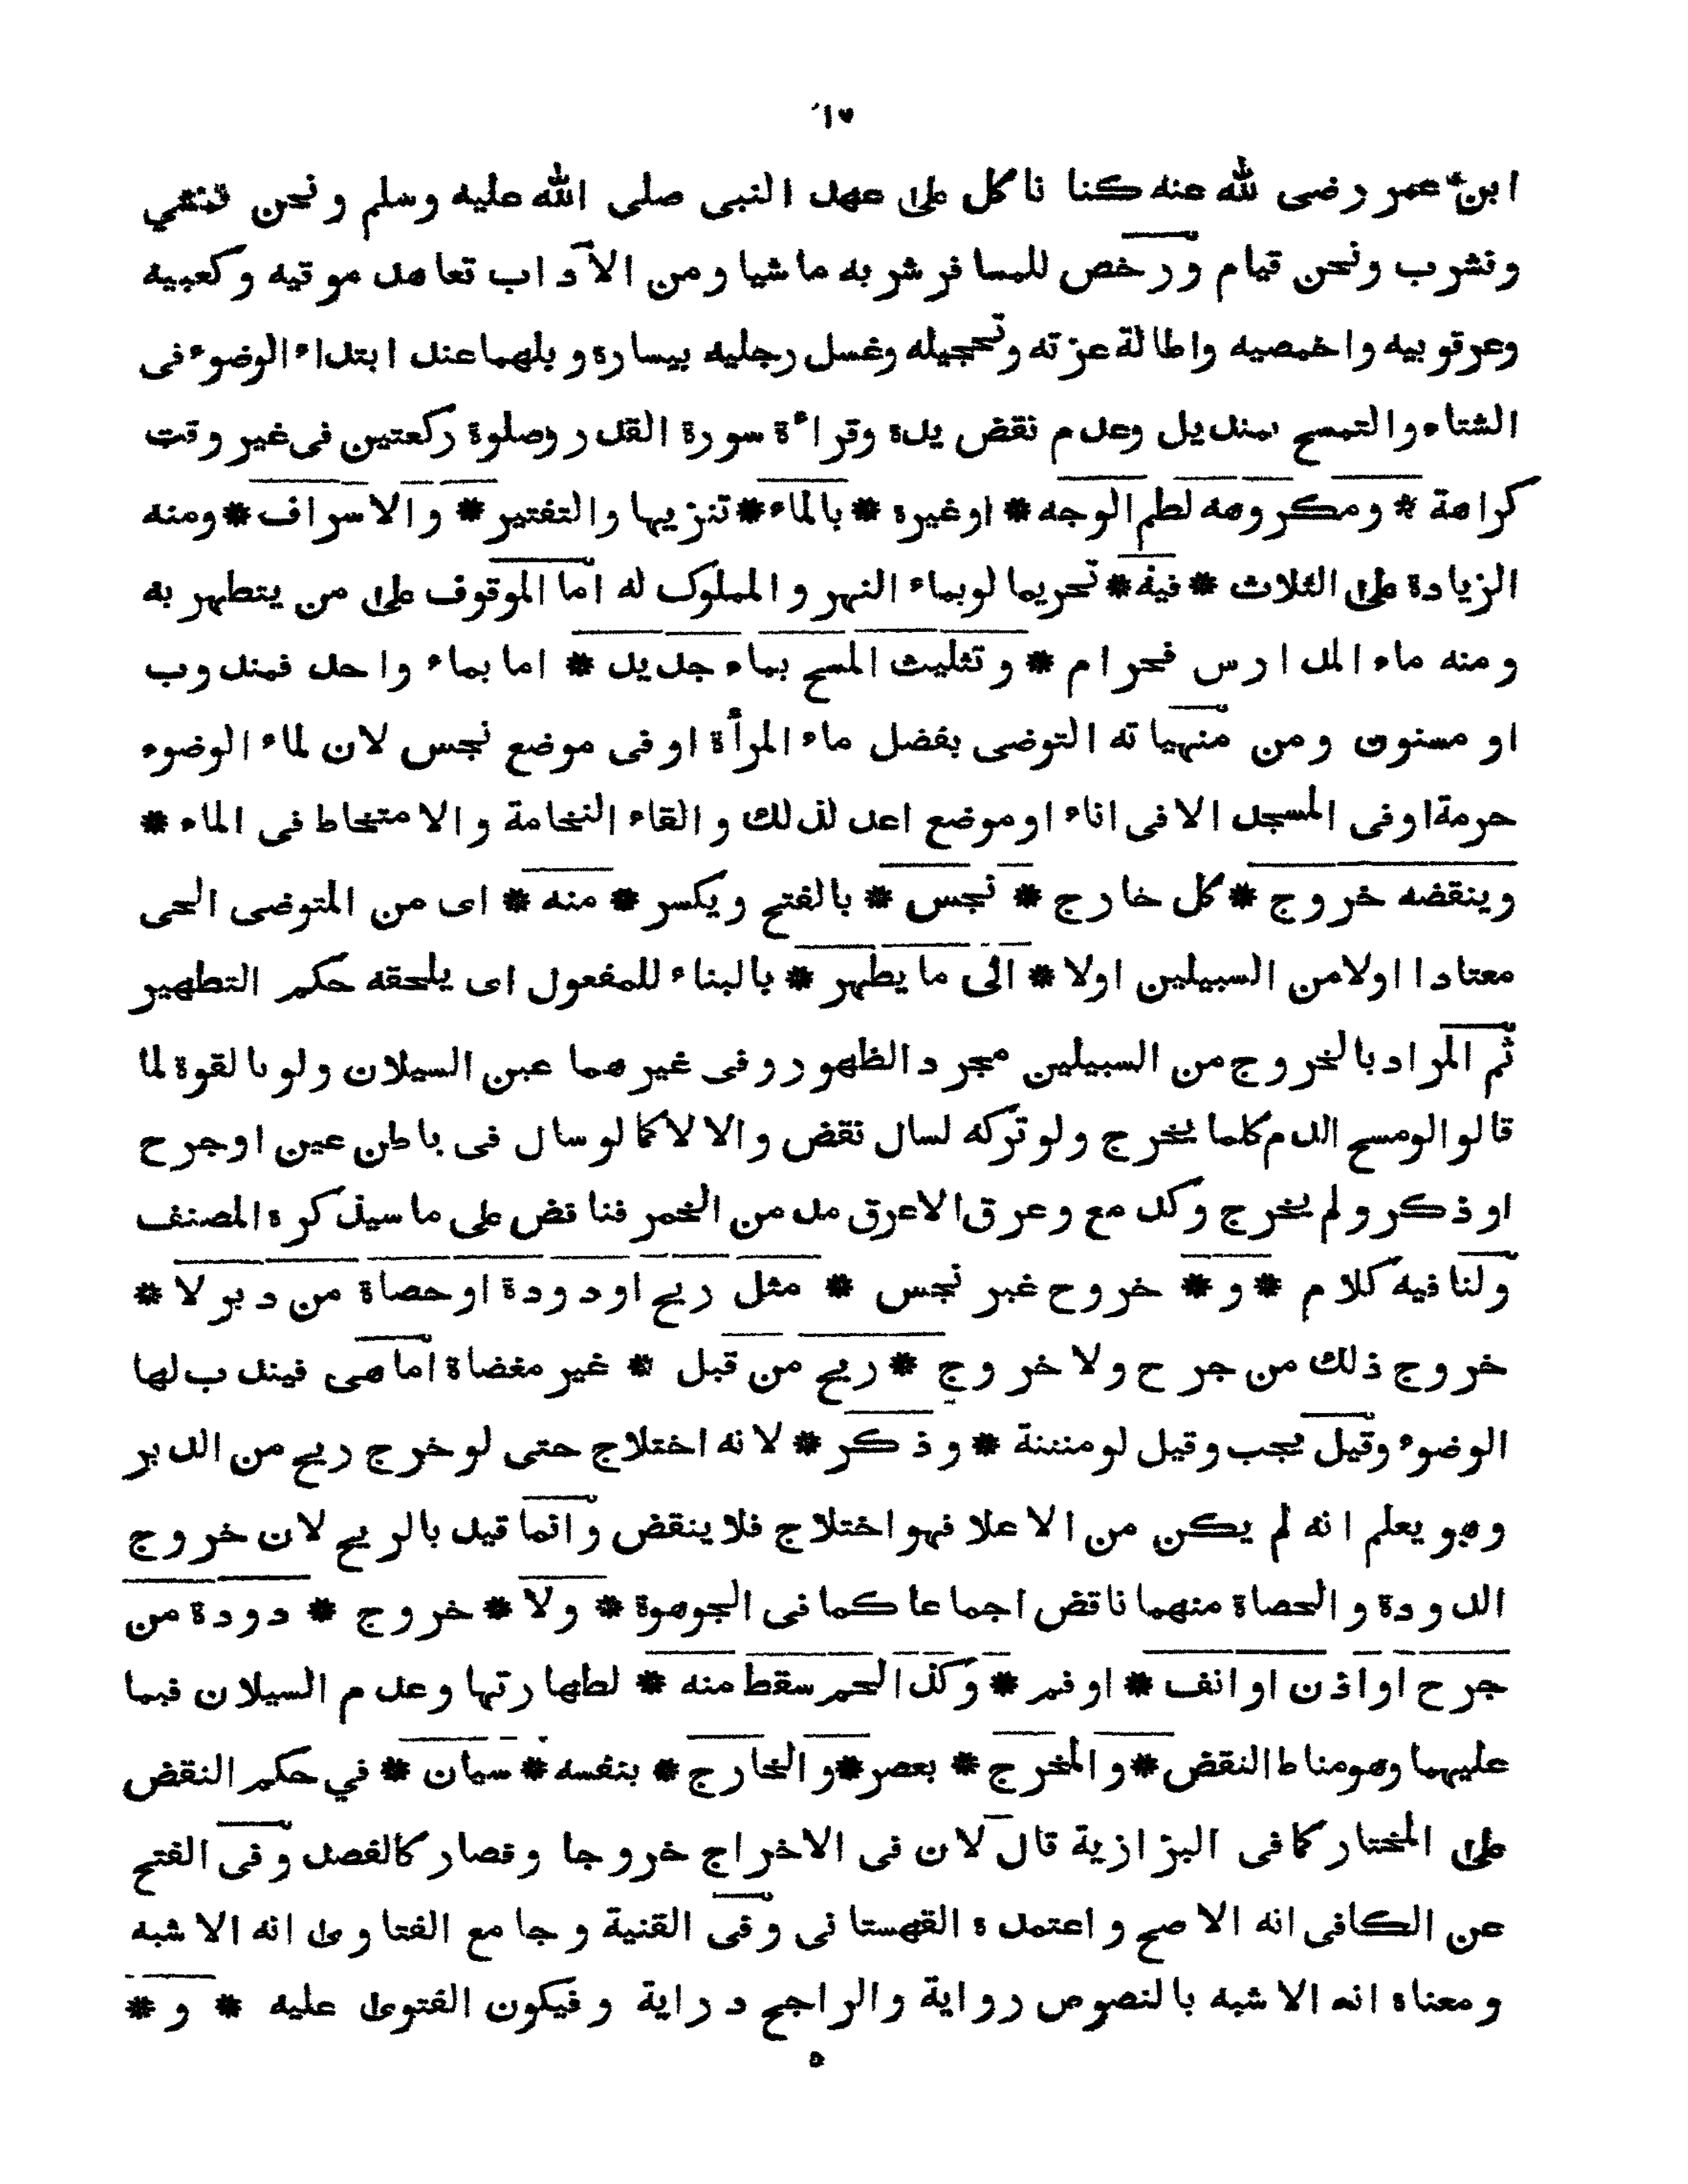 ١٧
ابن عمر رضى لله عنه كنا ناكل على عهد النبى صلى الله عليه وسلم ونحن نمشي
ونشرب ونحن قيام ورخص للمسافر شربه ماشيا ومن الآداب تعاهد موقيه وكعبيه
وعرقوبيه واخمصيه واطالة غرته وتحجيله وغسل رجليه بيساره وبلهما عند ابتداء الوضوء فى
الشتاء والتمسح بمنديل وعدم نقض يده وقراءة سورة القدر وصلوة ركعتين فى غير وقت
كراهة * ومكروهه لطم الوجه * اوغيره * بالماء * تنزيها والتقتير * والاسراف * ومنه
الزيادة على الثلاث * فيه * تحريما لوبماء النهر والمملوك له اما الموقوف على من يتطهر به
ومنه ماء المدارس فحرام * وتثليث المسح بماء جديد * اما بماء واحد فمندوب
او مسنون ومن منهياته التوضى بفضل ماء المرأة اوفى موضع نجس لان لماء الوضوء
حرمة اوفى المسجد الا فى اناء اوموضع اعد لذلك والقاء النخامة والامتخاط فى الماء *
وينقضه خروج * كل خارج * نجس * بالفتح ويكسر * منه * اى من المتوضى الحى
معتادا اولا من السبيلين اولا * الى ما يطهر * بالبناء للمفعول اى يلحقه حكم التطهير
ثم المراد بالخروج من السبيلين مجرد الظهور وفى غيرهما عبن السيلان ولو بالقوة لما
قالوا لومسح الدم كلما يخرج ولو تركه لسال نقض والا لا كما لو سال فى باطن عين اوجرح
اوذكر ولم يخرج وكدمع وعرق الاعرق مدمن الخمر فناقض على ما سيذكره المصنف
ولنا فيه كلام * و * خروح غبر نجس * مثل ريح اودودة اوحصاة من دبر لا *
خروج ذلك من جرح ولا خروج * ريح من قبل * غير مفضاة اما هى فيندب لها
الوضوء وقيل يجب وقيل لومنتنة * وذكر * لانه اختلاج حتى لو خرج ريح من الدبر
وهو يعلم انه لم يكن من الاعلا فهو اختلاج فلا ينقض وانما قيد بالريح لان خروج
الدودة والحصاة منهما ناقض اجماعا كما فى الجوهرة * ولا * خروج * دودة من
جرح اواذن اوانف * اوفم * وكذا لحم سقط منه * لطهارتها وعدم السيلان فيما
عليهما وهومناط النقض * والمخرج * بعصر * والخارج * بنفسه * سيان * في حكم النقض
على المختار كما فى البزازية قال لان فى الاخراج خروجا وفصار كالفصد وفى الفتح
عن الكافى انه الاصح واعتمده القهستانى وفى القنية وجامع الفتاوى انه الاشبه
ومعناه انه الاشبه بالنصوص رواية والراجح دراية وفيكون الفتوى عليه * و *
٥